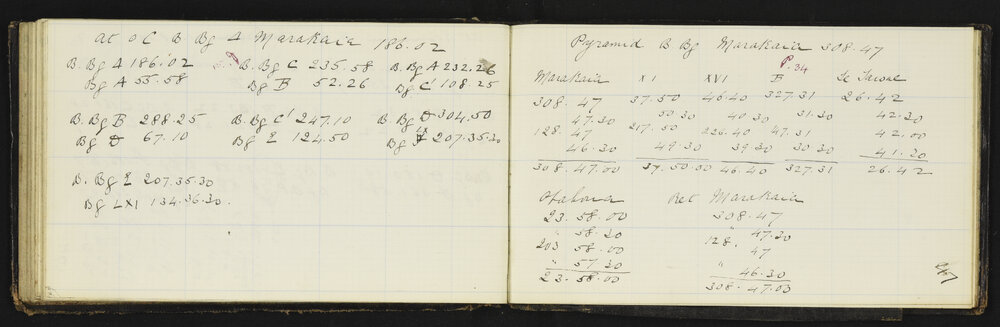 at oC B Bg A Marakaia 186.02
B. Bg A 186.02 B. Bg C 235.58 B. Bg A 232.26
Bg A 55.58 Bg B 52.26 Bg C 108.25
B. Bg B 288.25 B. Bg C' 247.10 B Bg D 304.50
Bg D 67.10 Bg E 124.50 Bg 207.35.30
B. Bg E 207.35.30
Bg LXI 134.36.30.
Pyramid B Bg Marakaia 308.47
P.34
Marakaia XI XVI B
308.47 37.50 46.40 327.31 26.42
47.30 50.30 40.30 31.30 42.30
128.47 217.50 226.40 47.31 42.00
46.30 49.30 39.30 30.30 41.30
308.47.00 37.50.00 46.40 327.31 26.42
Ret Marakaia
23.58.00 308.47
" 58.30 " 47.30
203 58.00 128. 47
" 57 30 " 46.30
23.58.00 308.47.00